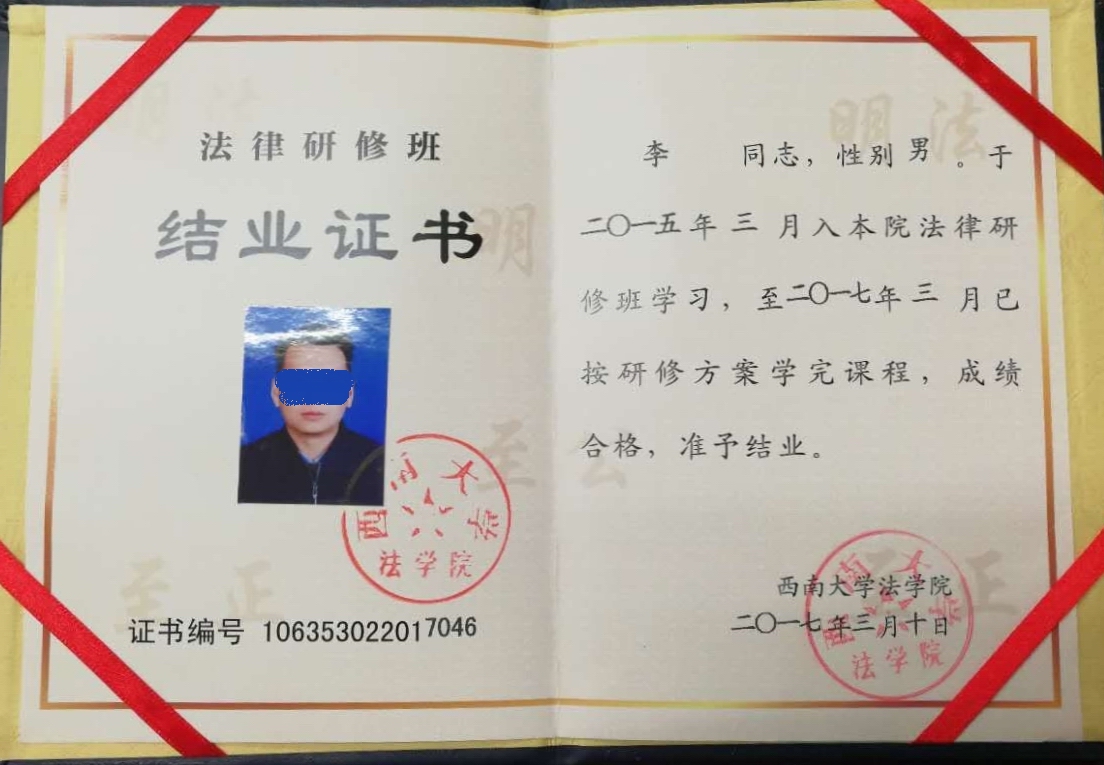 法律研修班
结业证书
西南大学
法学院
证书编号 106353022017046
李 同志，性别 男 。于
二〇一五年 三 月入本院法律研
修班学习，至二〇一七年 三 月已
按研修方案学完课程，成绩
合格，准予结业。
西南大学法学院
二〇一七年三月十日
西南大学
法学院
明法
明
至公
至正
正